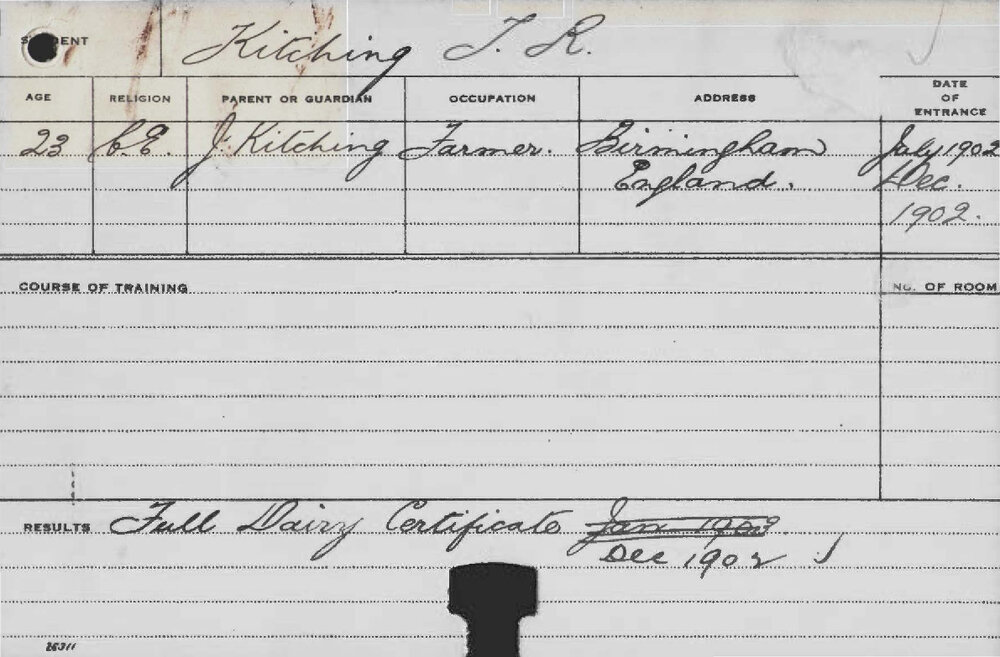 Kitching T. R.
AGE RELIGION PARENT OR GUARDIAN OCCUPATION ADDRESS DATE OF ENTRANCE
23 C.E. J. Kitching Farmer. Birmingham July 1902
England. Dec.
1902.
COURSE OF TRAINING NO. OF ROOM
RESULTS Full Dairy Certificate Jan
Dec 1902
26311